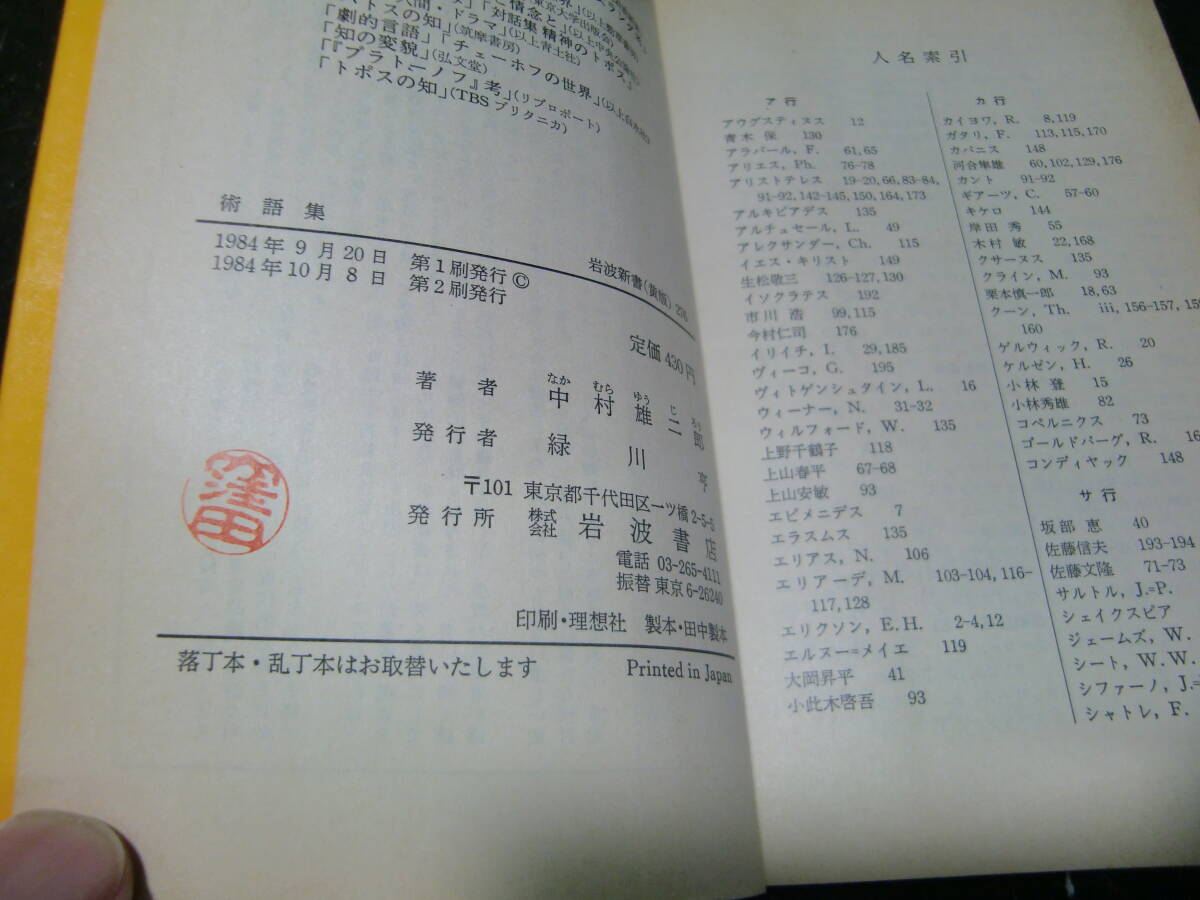 ランクル」
界」(以上
東京大学出版会)
情念と
「対話集 精神のトポス」
人間・ドラマ」(以上青土社)
パトスの知」(筑摩書房)
「劇的言語」「チェーホフの世界」
「知の変貌」(弘文堂)
「『プラトーノフ』考」(リブロポート)
「トポスの知」(TBSブリタニカ)
術語集
岩波新書(黄版) 276
1984年9月20日 第1刷発行©
1984年10月8日 第2刷発行
定価 430円
なか むら ゆう じ ろう
著者 中村雄二郎
発行者 緑川 亨
〒101 東京都千代田区一ツ橋2-5-5
発行所 株式会社 岩波書店
電話 03-265-4111
振替 東京 6-26240
印刷・理想社 製本・田中製本
落丁本・乱丁本はお取替いたします Printed in Japan
窪田
人名索引
ア行
アウグスティヌス 12
青木 保 130
アラバール, F. 61,65
アリエス, Ph. 76-78
アリストテレス 19-20,66,83-84,
91-92,142-145,150,164,173
アルキビアデス 135
アルチュセール, L. 49
アレクサンダー, Ch. 115
イエス・キリスト 149
生松敬三 126-127,130
イソクラテス 192
市川 浩 99,115
今村仁司 176
イリイチ, I. 29,185
ヴィーコ, G. 195
ヴィトゲンシュタイン, L. 16
ウィーナー, N. 31-32
ウィルフォード, W. 135
上野千鶴子 118
上山春平 67-68
上山安敏 93
エピメニデス 7
エラスムス 135
エリアス, N. 106
エリアーデ, M. 103-104,116-
117,128
エリクソン, E.H. 2-4,12
エルヌー=メイエ 119
大岡昇平 41
小此木啓吾 93
カ行
カイヨワ, R. 8,119
ガタリ, F. 113,115,170
カバニス 148
河合隼雄 60,102,129,176
カント 91-92
ギアーツ, C. 57-60
キケロ 144
岸田 秀 55
木村 敏 22,168
クサーヌス 135
クライン, M. 93
栗本慎一郎 18,63
クーン, Th. iii, 156-157,159
160
ゲルウィック, R. 20
ケルゼン, H. 26
小林 登 15
小林秀雄 82
コペルニクス 73
ゴールドバーグ, R. 16
コンディヤック 148
サ行
坂部 恵 40
佐藤信夫 193-194
佐藤文隆 71-73
サルトル, J.=P.
シェイクスピア
ジェームズ, W.
シート, W. W.
シファーノ, J.=
シャトレ, F.